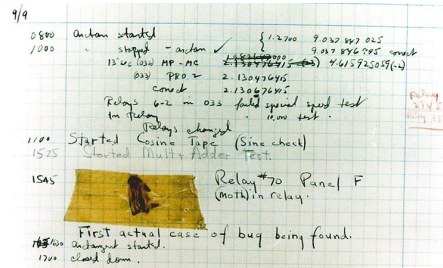 9/9
0800 Antan started { 1.2700 9.037 847 025
1000 " stopped - antan ✓ 9.037 846 995 correct
13"uc (032) MP - MC 2.130476415 4.615925059(-2)
(033) PRO 2 2.130476415
correct 2.130676415
Relays 6-2 in 033 failed special speed test
In Relay 10,000 test.
Relays changed
1100 Started Cosine Tape (Sine check)
1525 Started Mult+Adder Test.
1545 Relay #70 Panel F
(Moth) in relay.
First actual case of bug being found.
1630 antangent started.
1700 closed down.